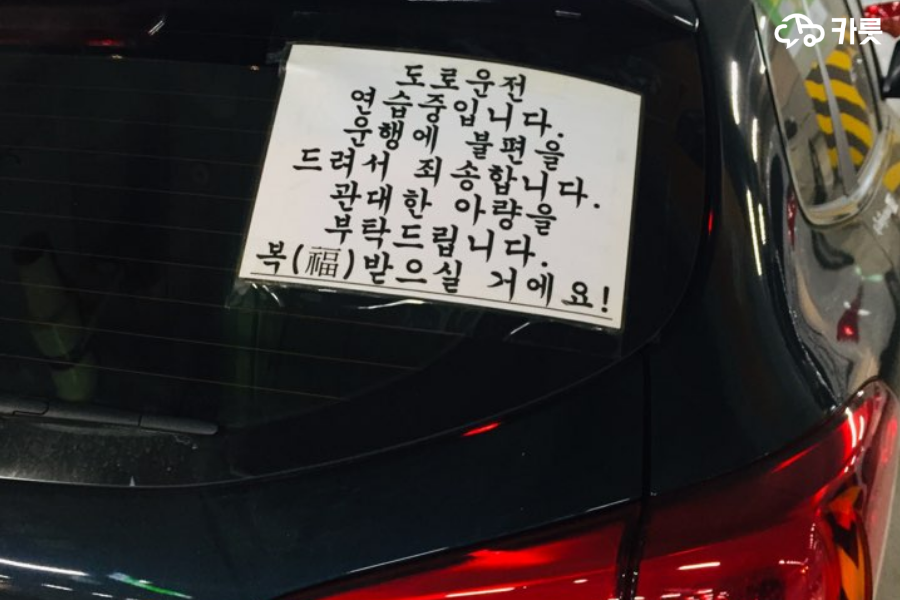 카룻
도로운전
연습중입니다.
운행에 불편을
드려서 죄송합니다.
관대한 아량을
부탁드립니다.
복(福)받으실 거에요!